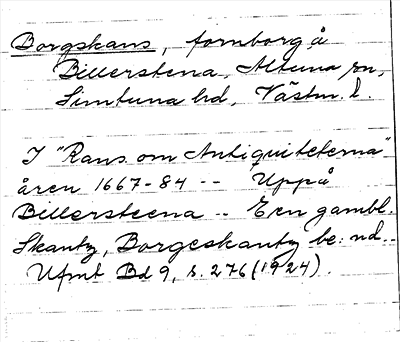 Borgskans, fornborg å
Billerstena, Altuna sn,
Simtuna hd, Västm. l.
I "Rans. om Antiquiteterna"
åren 1667-84 -- Uppå
Billersteena -- Een gambl.
Skantz, Borgeskantz be: nd..
Ufmt Bd 9, s. 276 (1924).